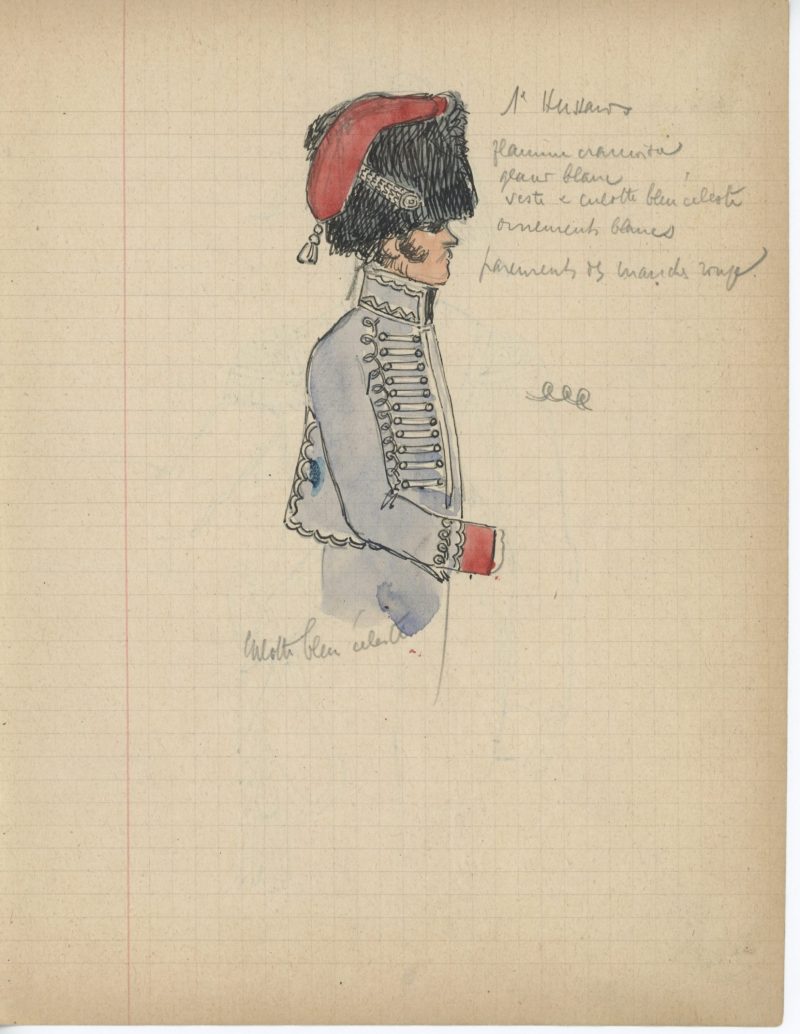 1er Hussards
flamme cramoisi
gland blanc
veste et culotte bleu céleste
ornements blancs
parements des manches rouge.
culotte bleu céleste